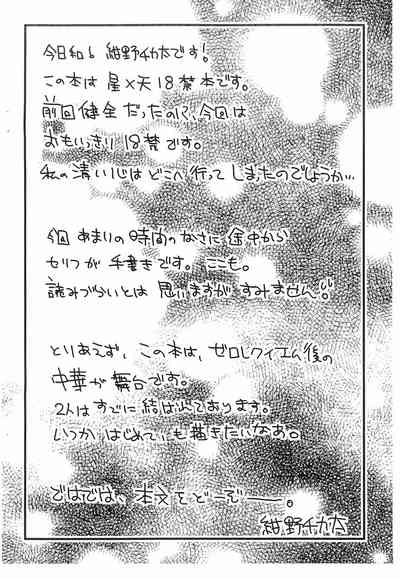 今日和！紺野チカ太です！
この本は 星×天 18禁本です。
前回健全だったのに、今回は
おもいっきり 18禁です。
私の清い心はどこへ行ってしまったのでしょうか…
今回 あまりの時間のなさに途中から
セリフが 手書きです。ここも。
読みづらいとは 思いますが すみません!!
とりあえず、この本は、ゼロレクイエム後の
中華が舞台です。
2人はすでに 結ばれております。
いつか はじめて も描きたいなあ。
ではでは、本文をどーぞー。
紺野チカ太